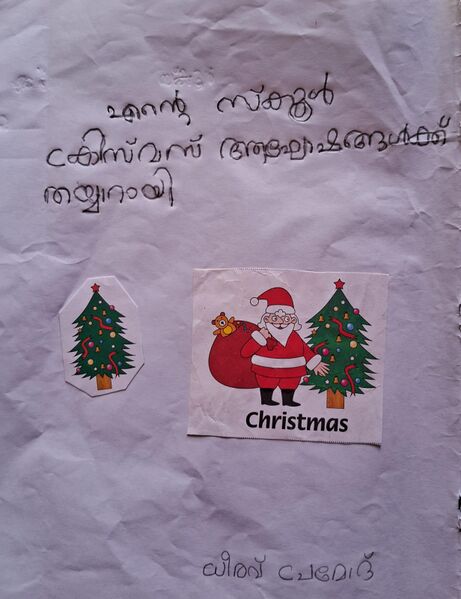 എന്റെ സ്ക്കൂൾ
ക്രിസ്മസ് ആഘോഷങ്ങൾക്ക്
തയ്യാറായി
Christmas
ധീരവ് പ്രമോദ്